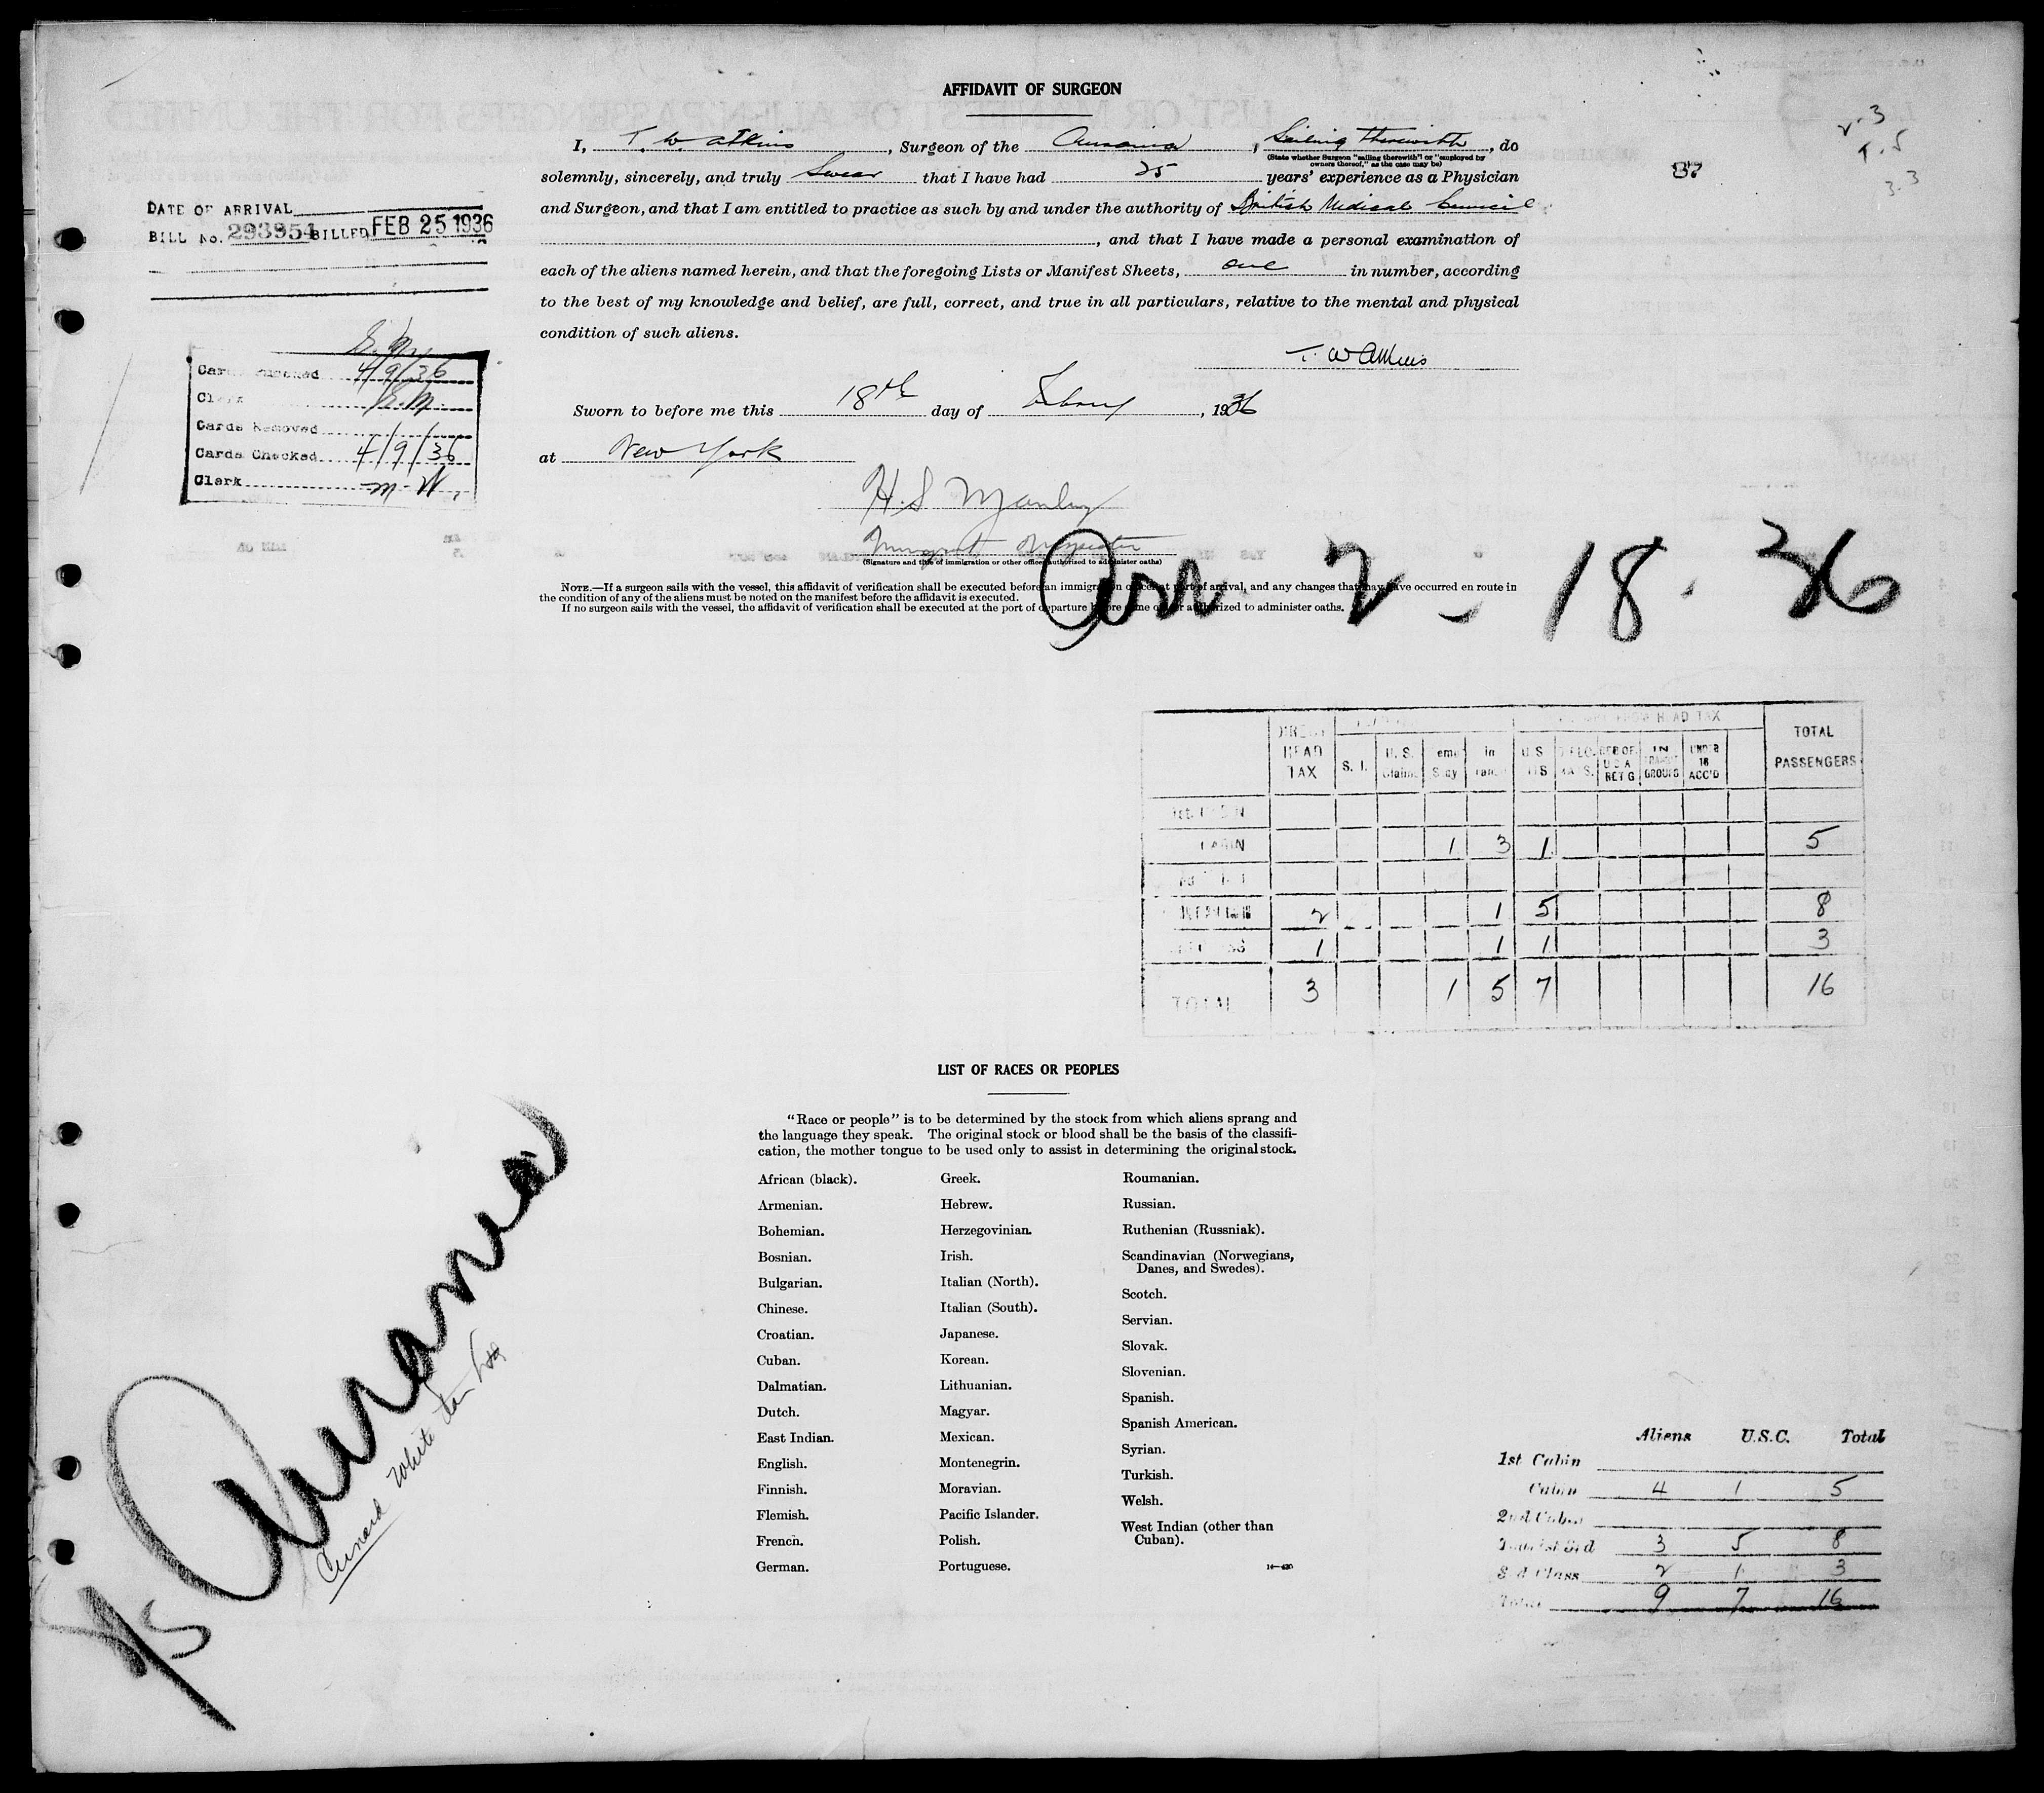 AFFIDAVIT OF SURGEON
I, T. W. Atkins, Surgeon of the Ausonia, Sailing therewith, do
(State whether Surgeon "sailing therewith" or "employed by owners thereof," as the case may be)
solemnly, sincerely, and truly Swear that I have had 25 years' experience as a Physician
and Surgeon, and that I am entitled to practice as such by and under the authority of British Medical Council
, and that I have made a personal examination of
each of the aliens named herein, and that the foregoing Lists or Manifest Sheets, one in number, according
to the best of my knowledge and belief, are full, correct, and true in all particulars, relative to the mental and physical
condition of such aliens.
T. W Atkins
Sworn to before me this 18th day of , 1936
at New York
H. S Manley
(Signature and title of immigration or other officer authorized to administer oaths)
NOTE.—If a surgeon sails with the vessel, this affidavit of verification shall be executed before an immigration officer at port of arrival, and any changes that may have occurred en route in
the condition of any of the aliens must be noted on the manifest before the affidavit is executed.
If no surgeon sails with the vessel, the affidavit of verification shall be executed at the port of departure before some officer authorized to administer oaths.
DATE OF ARRIVAL
BILL No. 293954 BILLED FEB 25 1936
4/9/36
Clerk
Cards Removed
Cards Checked 4/9/36
Clerk M. W.
Arr 2 - 18 - 36
DIRECT HEAD TAX S. I. U. S. Claim U S IN TRANSIT GROUPS UNDER 16 ACC'D TOTAL PASSENGERS
CABIN 1 3 1 5
2 1 5 8
1 1 1 3
TOTAL 3 1 5 7 16
LIST OF RACES OR PEOPLES
"Race or people" is to be determined by the stock from which aliens sprang and
the language they speak. The original stock or blood shall be the basis of the classifi-
cation, the mother tongue to be used only to assist in determining the original stock.
African (black).
Armenian.
Bohemian.
Bosnian.
Bulgarian.
Chinese.
Croatian.
Cuban.
Dalmatian.
Dutch.
East Indian.
English.
Finnish.
Flemish.
French.
German.
Greek.
Hebrew.
Herzegovinian.
Irish.
Italian (North).
Italian (South).
Japanese.
Korean.
Lithuanian.
Magyar.
Mexican.
Montenegrin.
Moravian.
Pacific Islander.
Polish.
Portuguese.
Roumanian.
Russian.
Ruthenian (Russniak).
Scandinavian (Norwegians,
Danes, and Swedes).
Scotch.
Servian.
Slovak.
Slovenian.
Spanish.
Spanish American.
Syrian.
Turkish.
Welsh.
West Indian (other than
Cuban).
Cunard White Star
Aliens U.S.C. Total
1st Cabin
Cabin 4 1 5
2nd Cabin
Tourist 3rd 3 5 8
3rd Class 2 1 3
Total 9 7 16